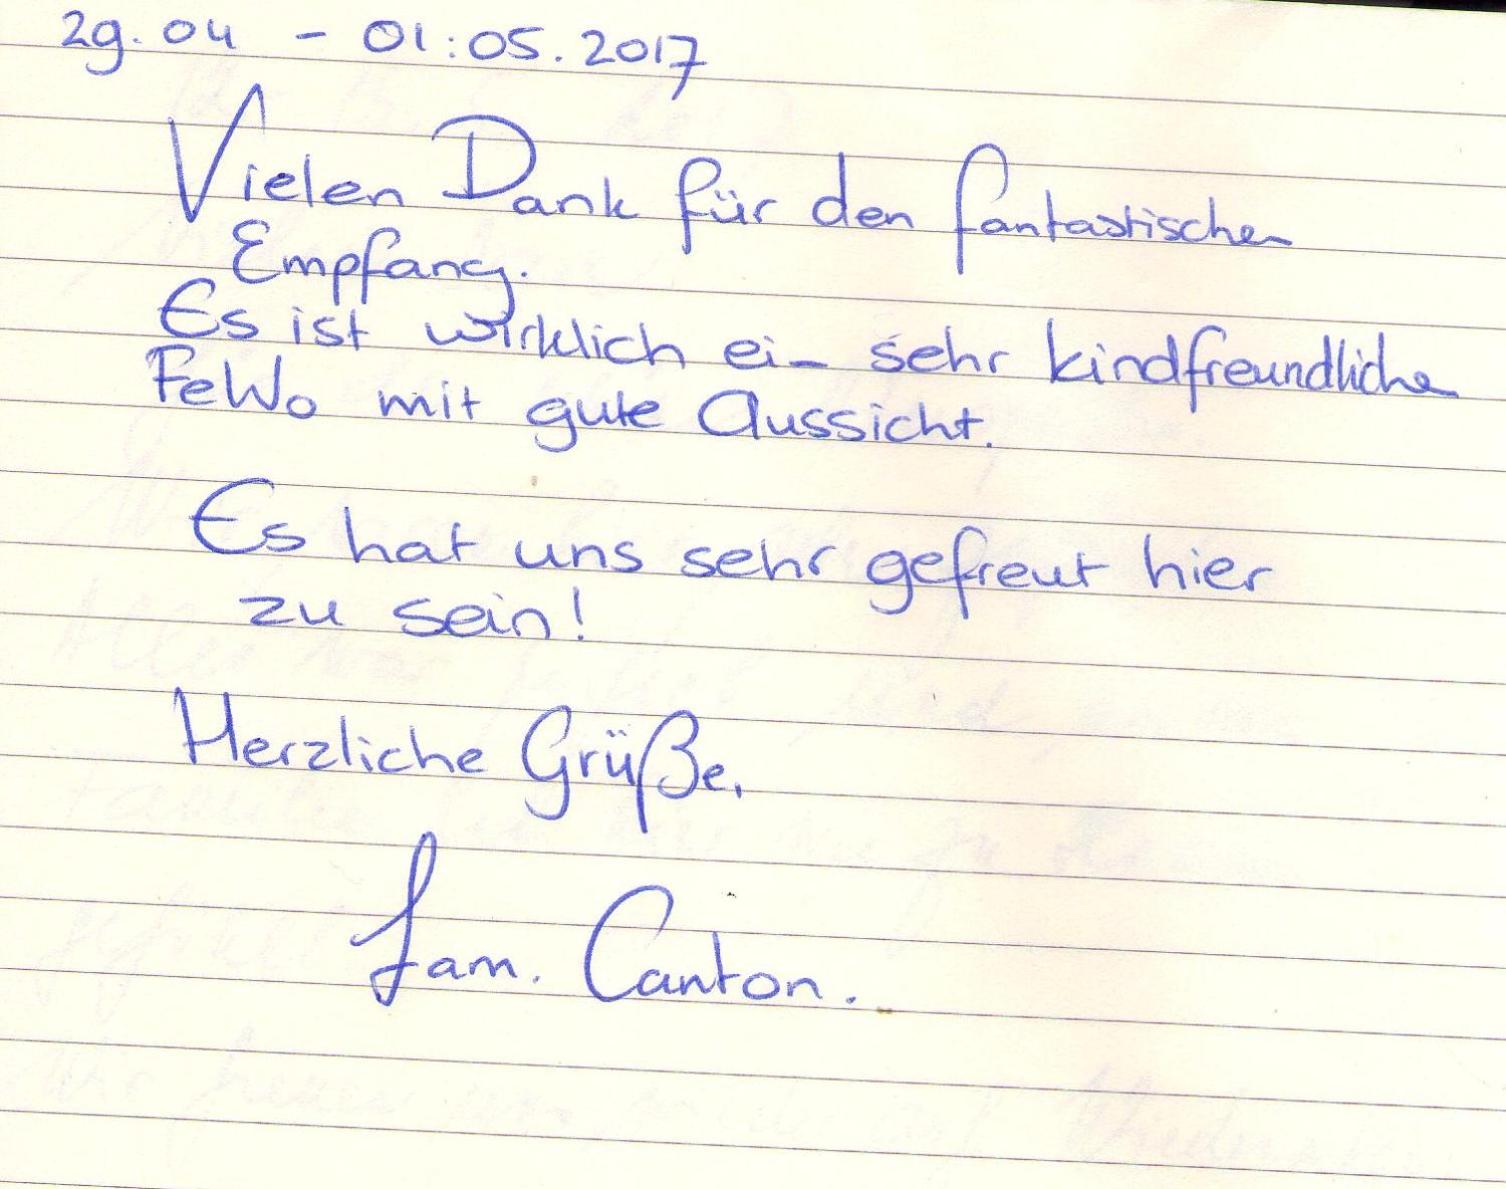 29.04 - 01:05.2017
Vielen Dank für den fantastischen
Empfang.
Es ist wirklich ein sehr kindfreundliche
FeWo mit gute Aussicht.
Es hat uns sehr gefreut hier
zu sein!
Herzliche Grüße,
fam. Canton.